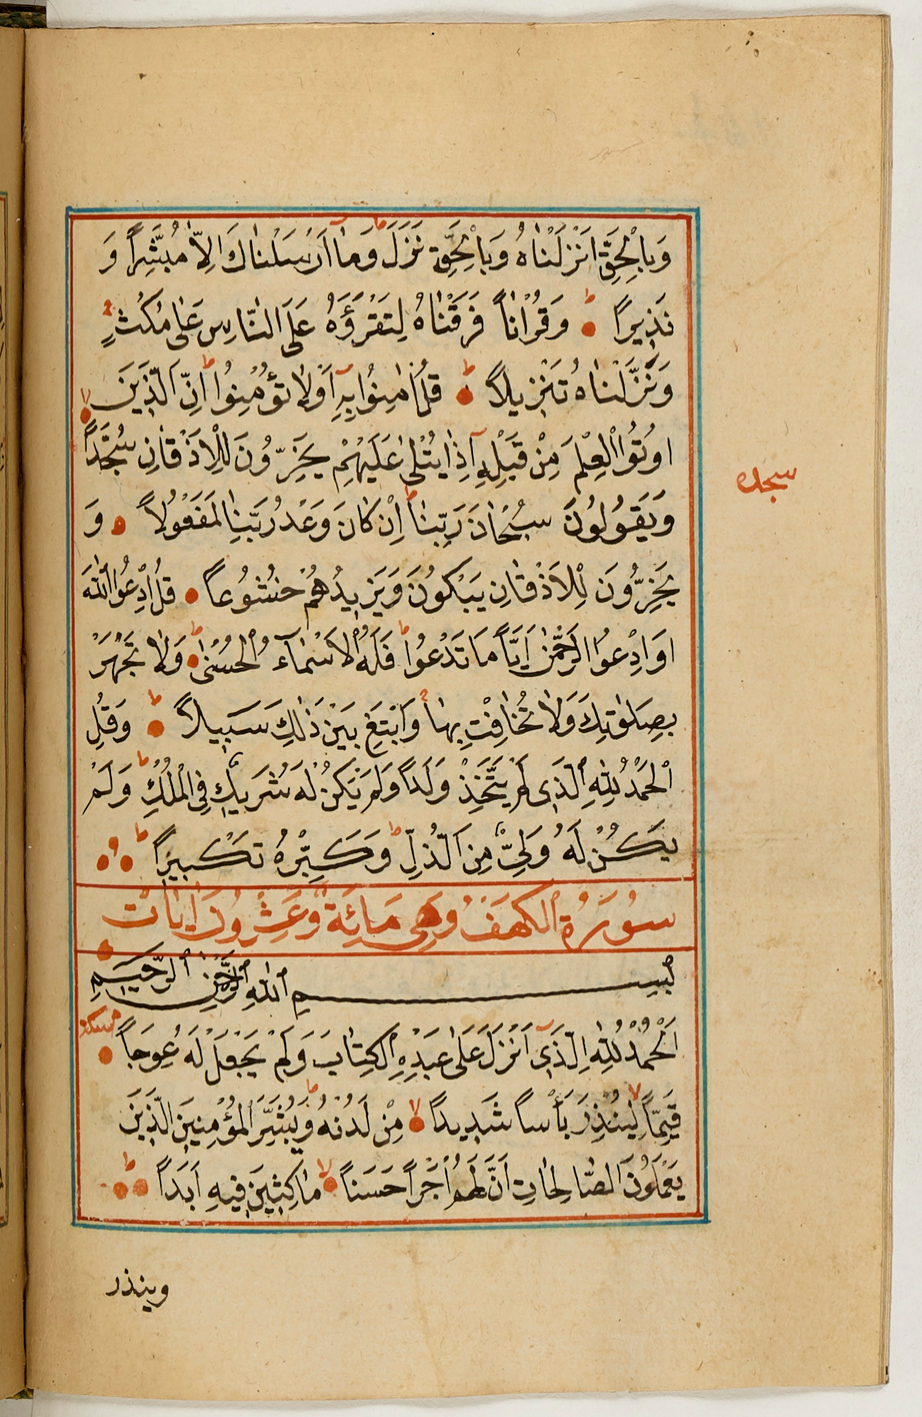 وَبِالْحَقِّ اَنْزَلْنَاهُ وَبِالْحَقِّ نَزَلَ ط وَمَٓا اَرْسَلْنَاكَ اِلَّا مُبَشِّرًا وَ
نَذِيرًا ط وَقُرْاٰنًا فَرَقْنَاهُ لِتَقْرَؤَهُ عَلَى النَّاسِ عَلٰى مُكْثٍ
وَنَزَّلْنَاهُ تَنْزِيلًا ط قُلْ اٰمِنُوا بِهِٓ اَوْلَا تُؤْمِنُوا ط اِنَّ الَّذِينَ لا
اُوتُوا الْعِلْمَ مِنْ قَبْلِهِٓ اِذَا يُتْلٰى عَلَيْهِمْ يَخِرُّونَ لِلْاَذْقَانِ سُجَّدًا
سجده
وَيَقُولُونَ سُبْحَانَ رَبِّنَا ط اِنْ كَانَ وَعْدُ رَبِّنَا لَمَفْعُولًا وَ
يَخِرُّونَ لِلْاَذْقَانِ يَبْكُونَ وَيَزِيدُهُمْ خُشُوعًا قُلِ ادْعُوا اللّٰهَ
اَوِ ادْعُوا الرَّحْمٰنَ اَيًّا مَا تَدْعُوا ط فَلَهُ الْاَسْمَآءُ الْحُسْنٰى ط وَلَا تَجْهَرْ
بِصَلٰوتِكَ وَلَا تُخَافِتْ بِهَا وَابْتَغِ بَيْنَ ذٰلِكَ سَبِيلًا ط وَقُلِ
الْحَمْدُ لِلّٰهِ الَّذِى لَمْ يَتَّخِذْ وَلَدًا وَلَمْ يَكُنْ لَهُ شَرِيكٌ فِى الْمُلْكِ ط وَلَمْ
يَكُنْ لَهُ وَلِىٌّ مِنَ الذُّلِّ ط وَكَبِّرْهُ تَكْبِيرًا ط
سُورَةُ الْكَهْفِ وَهِىَ مَائَةٌ وَعَشْرُونَ اٰيَات
بِسْمِ اللّٰهِ الرَّحْمٰنِ الرَّحِيمِ
اَلْحَمْدُ لِلّٰهِ الَّذِٓى اَنْزَلَ عَلٰى عَبْدِهِ الْكِتَابَ وَلَمْ يَجْعَلْ لَهُ عِوَجًا
قَيِّمًا لا لِيُنْذِرَ بَأْسًا شَدِيدًا لا مِنْ لَدُنْهُ ط وَيُبَشِّرَ الْمُؤْمِنِينَ الَّذِينَ
يَعْمَلُونَ الصَّالِحَاتِ اَنَّ لَهُمْ اَجْرًا حَسَنًا لا مَاكِثِينَ فِيهِ اَبَدًا ط
وينذر